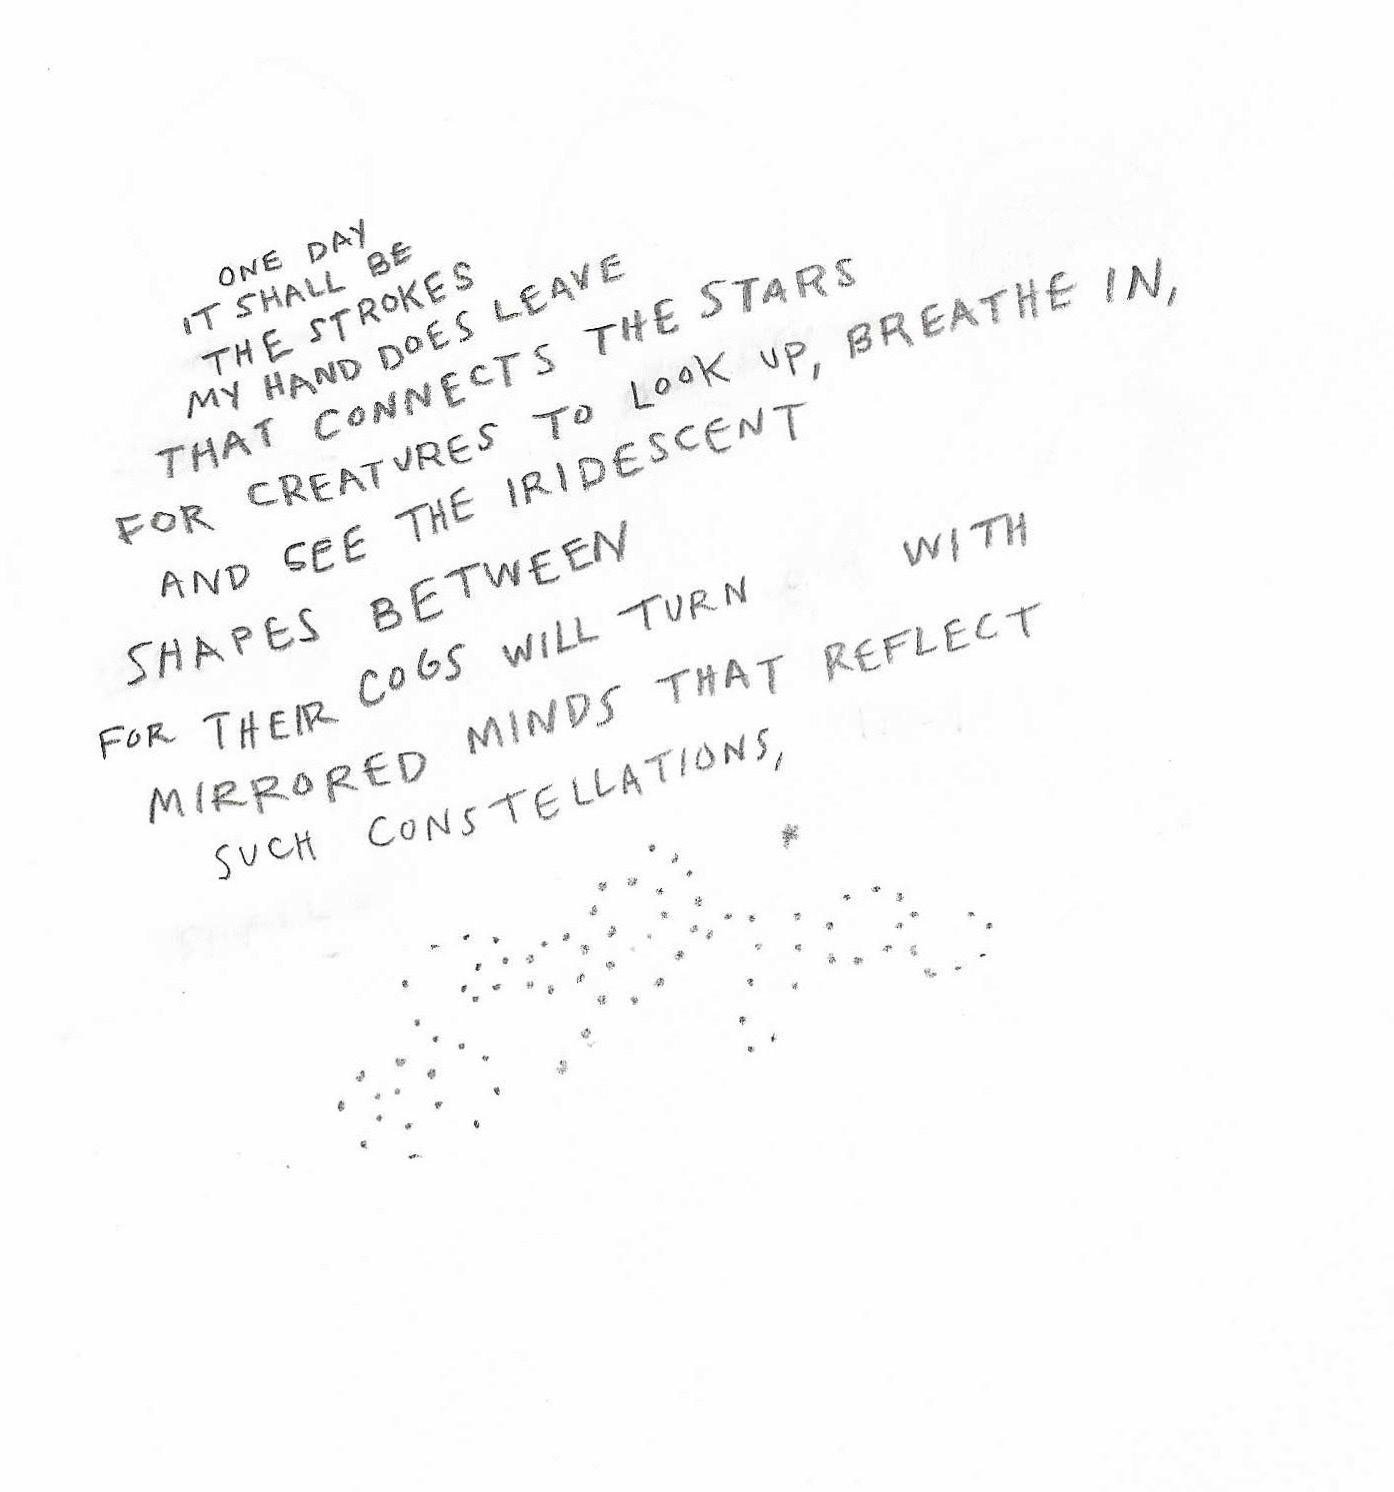 ONE DAY
IT SHALL BE
THE STROKES
MY HAND DOES LEAVE
THAT CONNECTS THE STARS
FOR CREATURES TO LOOK UP, BREATHE IN,
AND SEE THE IRIDESCENT
SHAPES BETWEEN
FOR THEIR COGS WILL TURN WITH
MIRRORED MINDS THAT REFLECT
SUCH CONSTELLATIONS,